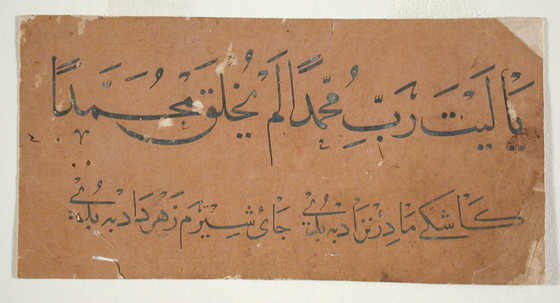 يَا لَيْتَ رَبِّ مُحَمَّدًا لَمْ يُخْلَقْ مُحَمَّدًا
كاشكى مادر نزاد به بُدى جاى شيرم زهر داد به بُدى